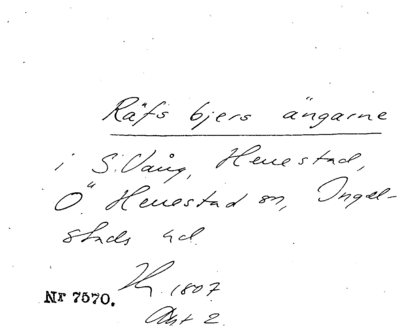 Räfs bjers ängarne
i S. Vång, Henestad,
Ö. Henestad sn, Ingel-
stads hd.
1807
Nr 7570.
Akt 2.